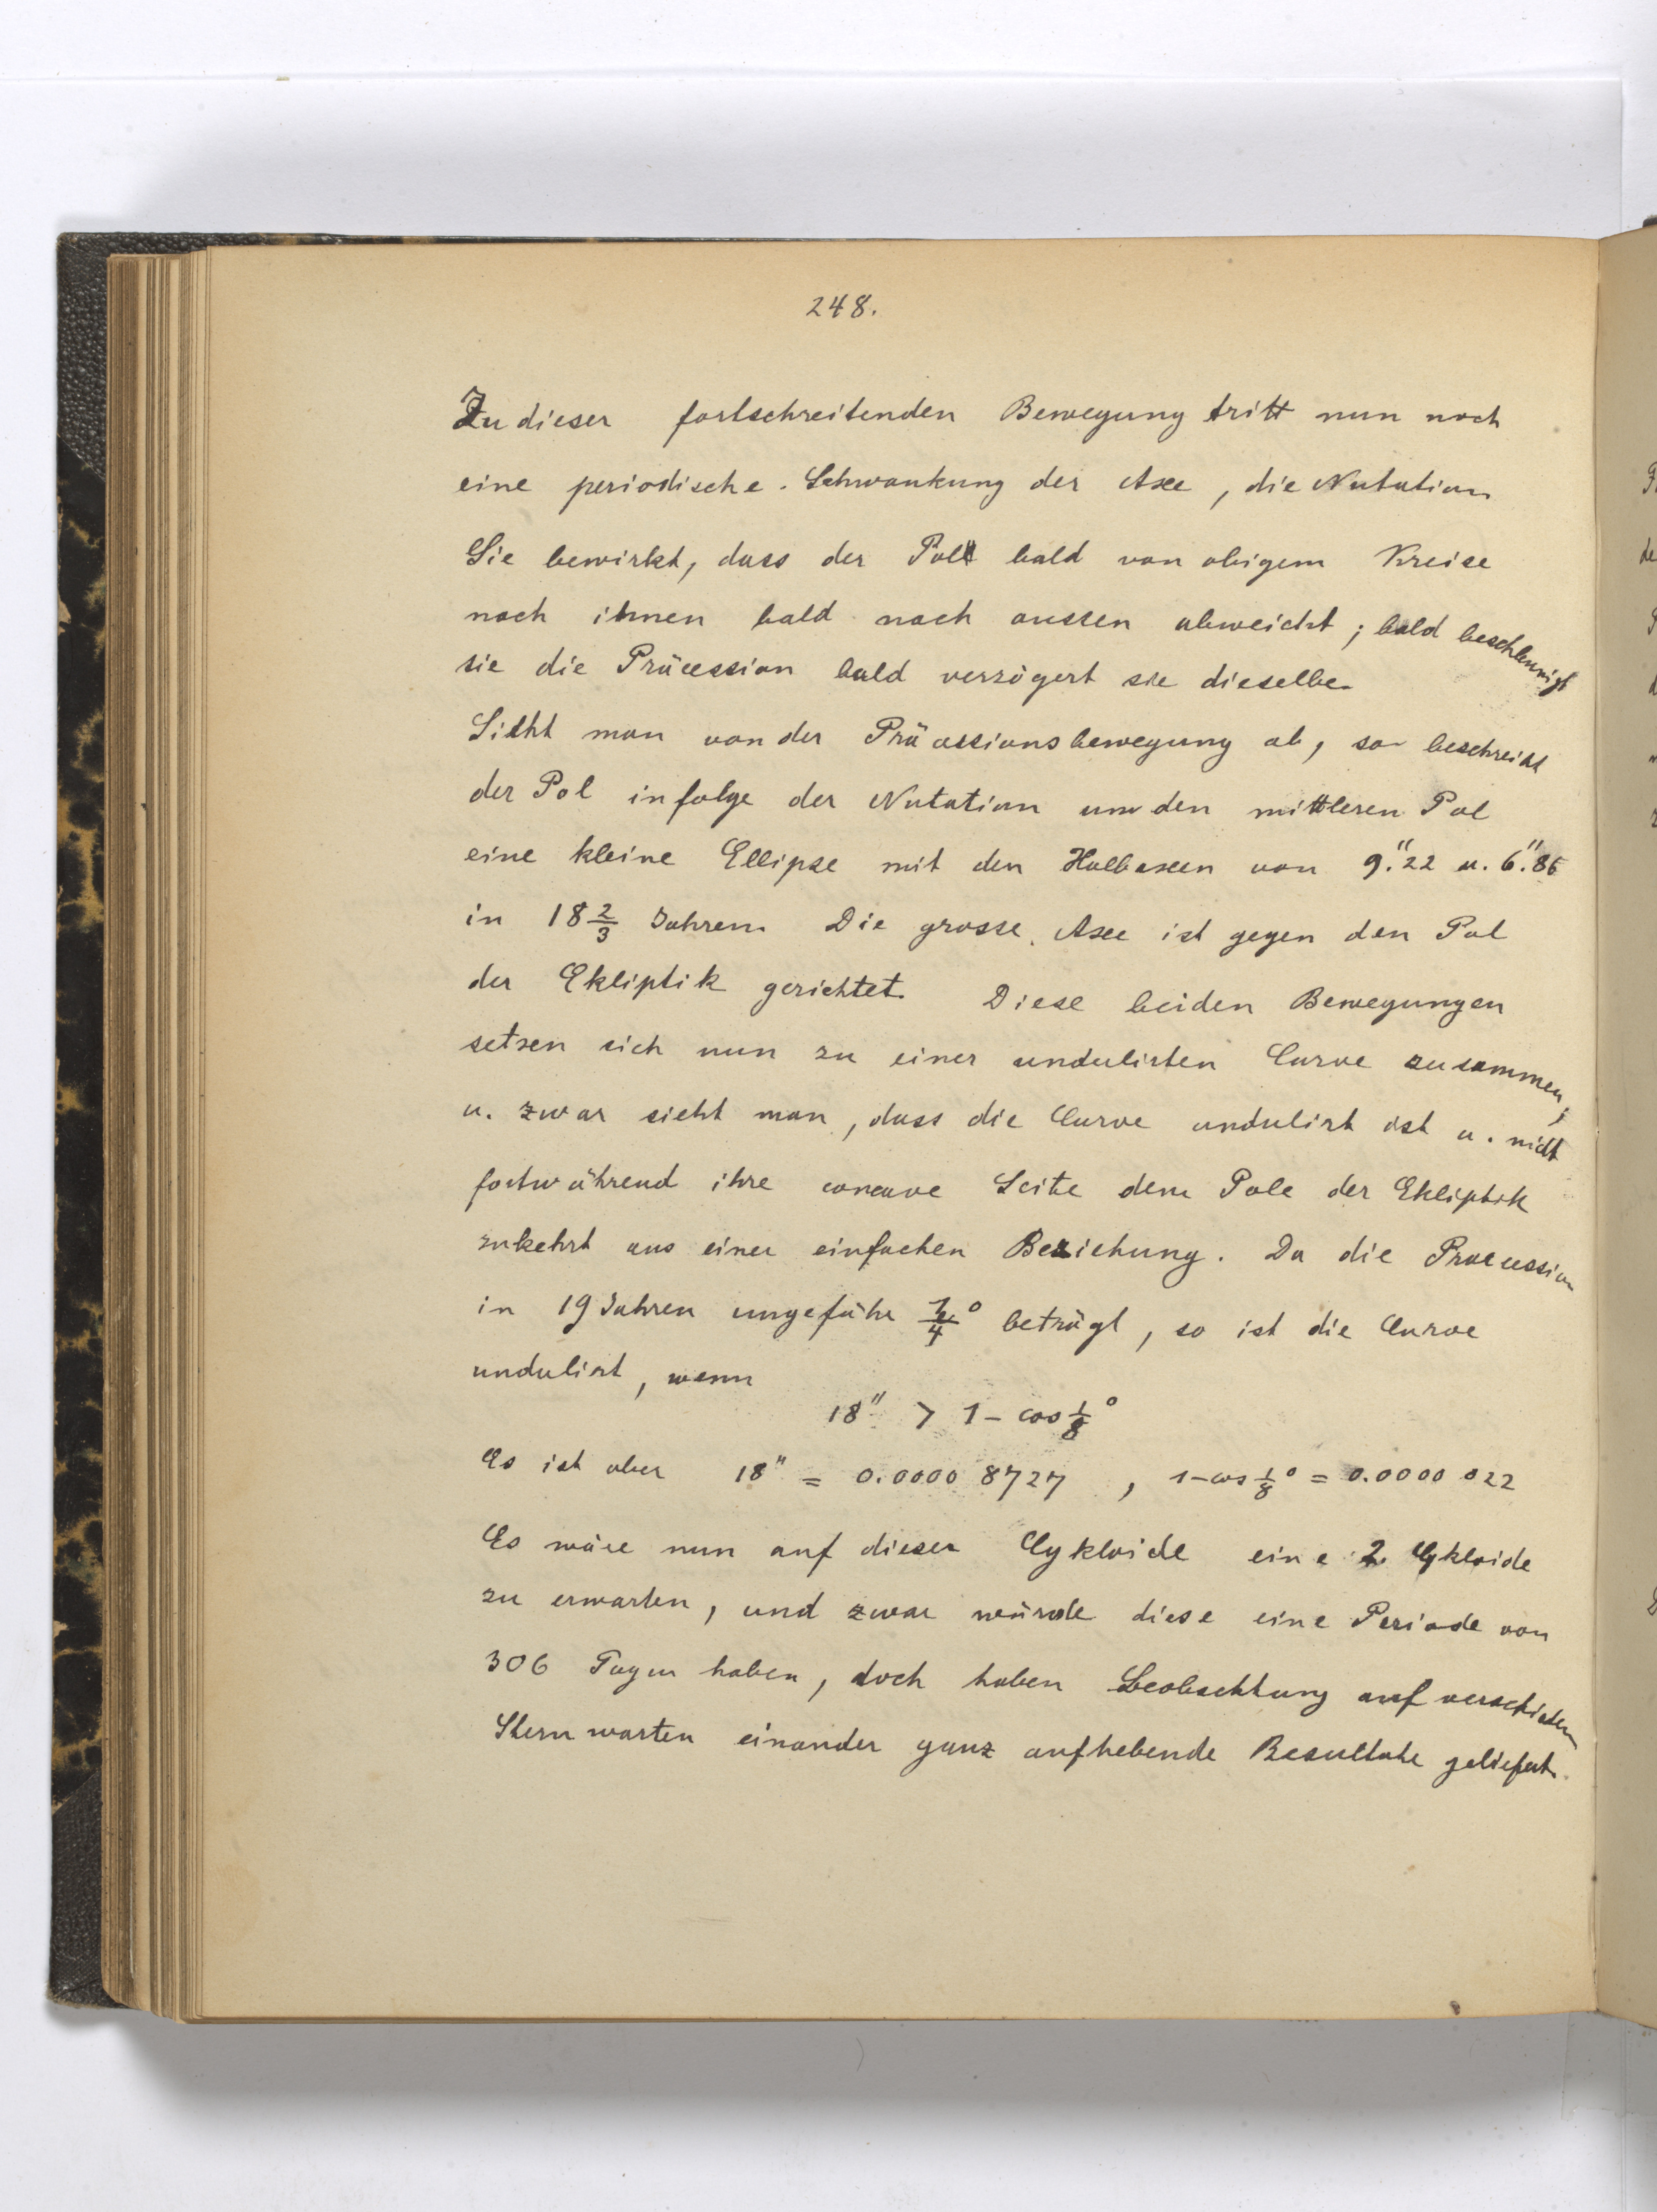 248.
Zu dieser fortschreitenden Bewegung tritt nun noch
eine periodische Schwankung der Axe, die Nutation
Sie bewirkt, dass der Pol bald von obigem Kreise
nach innen bald nach aussen abweicht; bald beschleunigt
sie die Präcession bald verzögert sie dieselbe.
Sieht man von der Präcessionsbewegung ab, so beschreibt
der Pol infolge der Nutation um den mittleren Pol
eine kleine Ellipse mit den Halbaxen von 9."22 u. 6."86
in 18 2/3 Jahren. Die grosse Axe ist gegen den Pol
der Ekliptik gerichtet. Diese beiden Bewegungen
setzen sich nun zu einer undulirten Curve zusammen,
u. zwar sieht man, dass die Curve undulirt ist u. nicht
fortwährend ihre concave Seite dem Pole der Ekliptik
zukehrt aus einer einfachen Beziehung. Da die Praecession
in 19 Jahren ungefähr 1/4° beträgt, so ist die Curve
undulirt, wenn
18" > 1 - cos 1/8°
Es ist aber 18" = 0.0000 8727 , 1-cos 1/8° = 0.0000 022
Es wäre nun auf dieser Cykloide eine 2. Cykloide
zu erwarten, und zwar würde diese eine Periode von
306 Tagen haben, doch haben Beobachtung auf verschieden
Sternwarten einander ganz aufhebende Resultate geliefert.